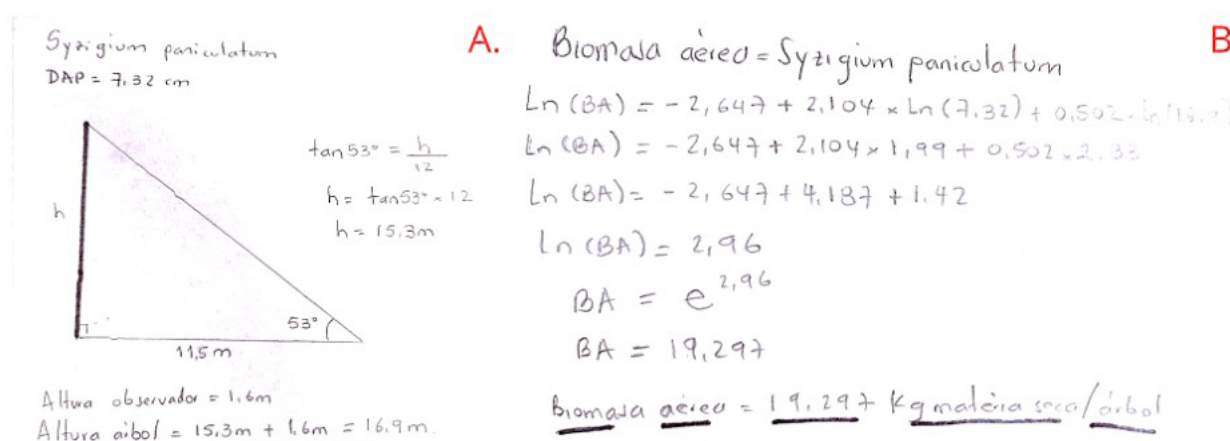 Syzigium paniculatum
DAP = 7.32 cm
h
53°
11,5 m
tan 53° = h/12
h = tan 53° × 12
h = 15.3m
Altura observador = 1.6m
Altura árbol = 15.3m + 1.6m = 16.9m.
A.
Biomasa aéreo = Syzigium paniculatum
Ln (BA) = - 2,647 + 2.104 × Ln (7.32) + 0.502 · Ln (16.9)
Ln (BA) = - 2,647 + 2.104 × 1,99 + 0.502 × 2.83
Ln (BA) = - 2,647 + 4.187 + 1.42
Ln (BA) = 2,96
BA = e^2,96
BA = 19,297
Biomasa aéreo = 19.297 Kg matéria seca/árbol
B